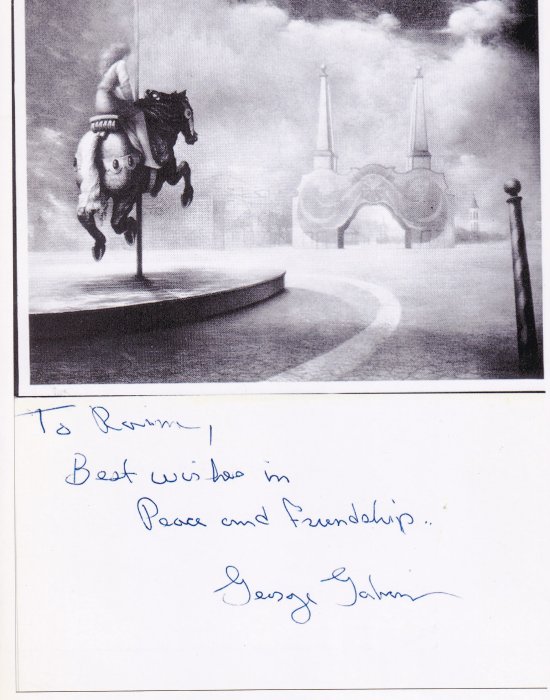 To
Best wishes in
Peace and Friendship..
George Gabin